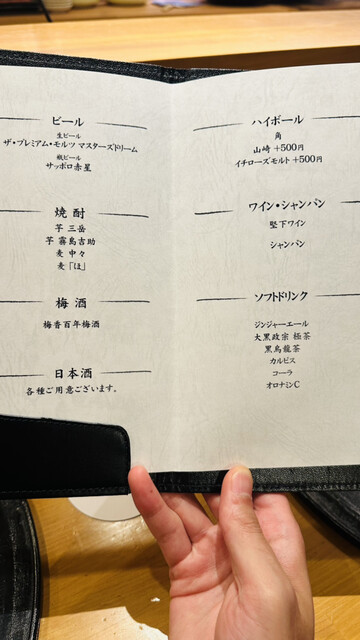 ビール
生ビール
ザ・プレミアム・モルツ マスターズドリーム
瓶ビール
サッポロ赤星
焼酎
芋 三岳
芋 霧島吉助
麦 中々
麦「ほ」
梅酒
梅香百年梅酒
日本酒
各種ご用意ございます。
ハイボール
角
山崎 +500円
イチローズモルト +500円
ワイン・シャンパン
堅下ワイン
シャンパン
ソフトドリンク
ジンジャーエール
大黒政宗 極茶
黒烏龍茶
カルピス
コーラ
オロナミンC